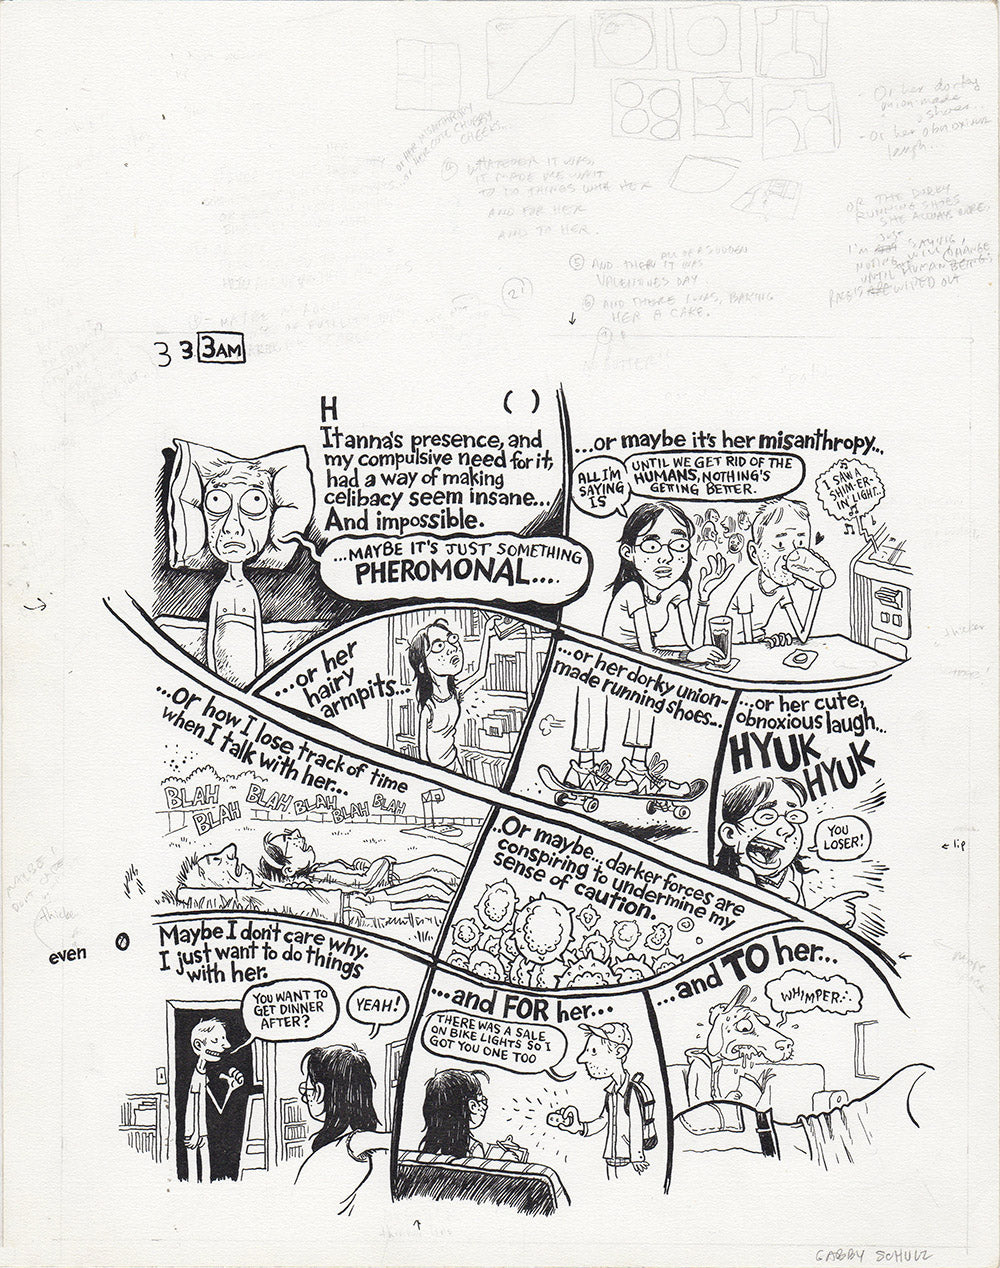 - Or her dorky
union-made
shoes...
- Or her obnoxious
laugh...
OR HER MISANTHROPY
OR HER CUTE CHUBBY
CHEEKS...
④ WHATEVER IT WAS,
IT MADE ME WANT
TO DO THINGS WITH HER
AND FOR HER
AND TO HER.
OR THE DORKY
RUNNING SHOES
SHE ALWAYS WORE.
I'M JUST SAYING,
NOTHING WILL CHANGE
UNTIL HUMAN BEINGS
RACE IS WIPED OUT
⑤ AND THEN ALL OF A SUDDEN
IT WAS
VALENTINES DAY
⑥ AND THERE I WAS, BAKING
HER A CAKE.
3 3 3AM
H ( )
Itanna's presence, and
my compulsive need for it,
had a way of making
celibacy seem insane...
And impossible.
...MAYBE IT'S JUST SOMETHING
PHEROMONAL....
...or maybe it's her misanthropy...
ALL I'M
SAYING
IS
UNTIL WE GET RID OF THE
HUMANS, NOTHING'S
GETTING BETTER.
I SAW A
SHIM-ER-
IN' LIGHT..
...or her
hairy
armpits...
...or her dorky union-
made running shoes...
...or her cute,
obnoxious laugh...
HYUK
HYUK
YOU
LOSER!
...or how I lose track of time
when I talk with her...
BLAH
BLAH
BLAH
BLAH
BLAH
BLAH
...Or maybe... darker forces are
conspiring to undermine my
sense of caution.
lip
thicker
even 0
Maybe I don't care why.
I just want to do things
with her.
YOU WANT TO
GET DINNER
AFTER?
YEAH!
...and FOR her...
THERE WAS A SALE
ON BIKE LIGHTS SO I
GOT YOU ONE TOO
...and TO her...
WHIMPER...
GABBY SCHULZ